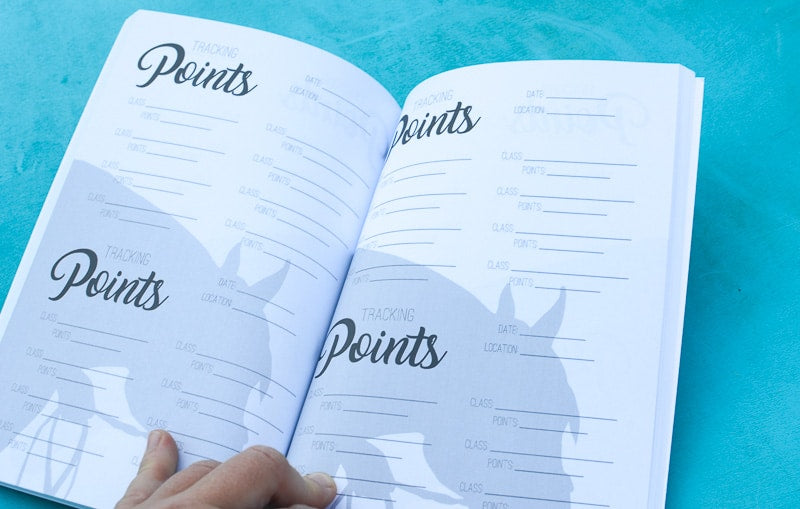 TRACKING
Points
DATE:
LOCATION:
CLASS:
POINTS:
CLASS:
POINTS:
CLASS:
POINTS:
CLASS:
POINTS:
CLASS:
POINTS:
CLASS:
POINTS:
CLASS:
POINTS:
CLASS:
POINTS:
TRACKING
Points
DATE:
LOCATION:
CLASS:
POINTS:
CLASS:
POINTS:
CLASS:
POINTS:
CLASS:
POINTS:
CLASS:
POINTS:
CLASS:
POINTS:
CLASS:
TRACKING
Points
DATE:
LOCATION:
CLASS:
POINTS:
CLASS:
POINTS:
CLASS:
POINTS:
CLASS:
POINTS:
TRACKING
Points
DATE:
LOCATION:
POINTS:
POINTS:
CLASS:
POINTS:
CLASS:
POINTS:
CLASS:
POINTS: